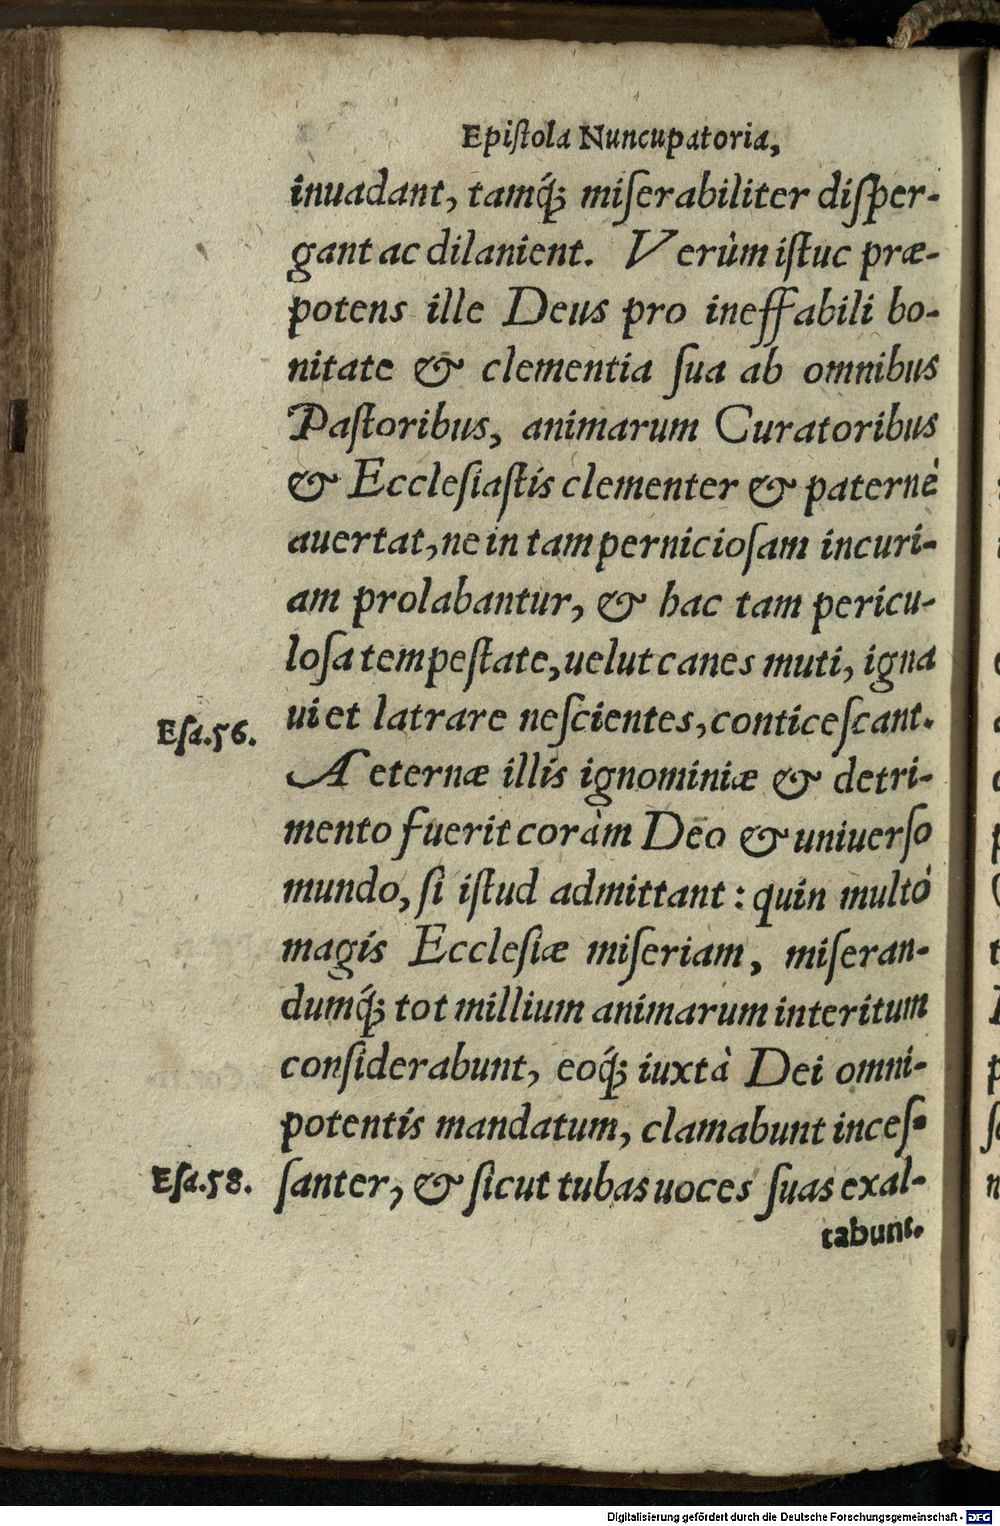 Epiſtola Nuncupatoria,
inuadant, tamq́; miſerabiliter diſper-
gant ac dilanient. Verùm iſtuc præ-
potens ille Deus pro ineffabili bo-
nitate & clementia ſua ab omnibus
Paſtoribus, animarum Curatoribus
& Eccleſiaſtis clementer & paternè
auertat, ne in tam pernicioſam incuri-
am prolabantur, & hac tam pericu-
loſa tempeſtate, uelut canes muti, igna
Eſa.56. ui et latrare neſcientes, conticeſcant.
Aeternæ illis ignominiæ & detri-
mento fuerit coràm Deo & uniuerſo
mundo, ſi iſtud admittant: quin multò
magis Eccleſiæ miſeriam, miſeran-
dumq́; tot millium animarum interitum
conſiderabunt, eoq́; iuxtà Dei omni-
potentis mandatum, clamabunt inceſ-
Eſa.58. ſanter, & ſicut tubas uoces ſuas exal-
tabunt.
Digitalisierung gefördert durch die Deutsche Forschungsgemeinschaft - DFG